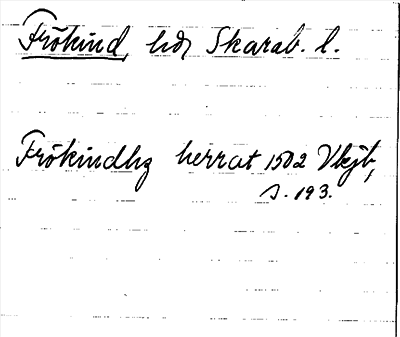 Frökind, hd, Skarab. l.
Frökindhz herrat 1502 Vkjb,
s. 193.